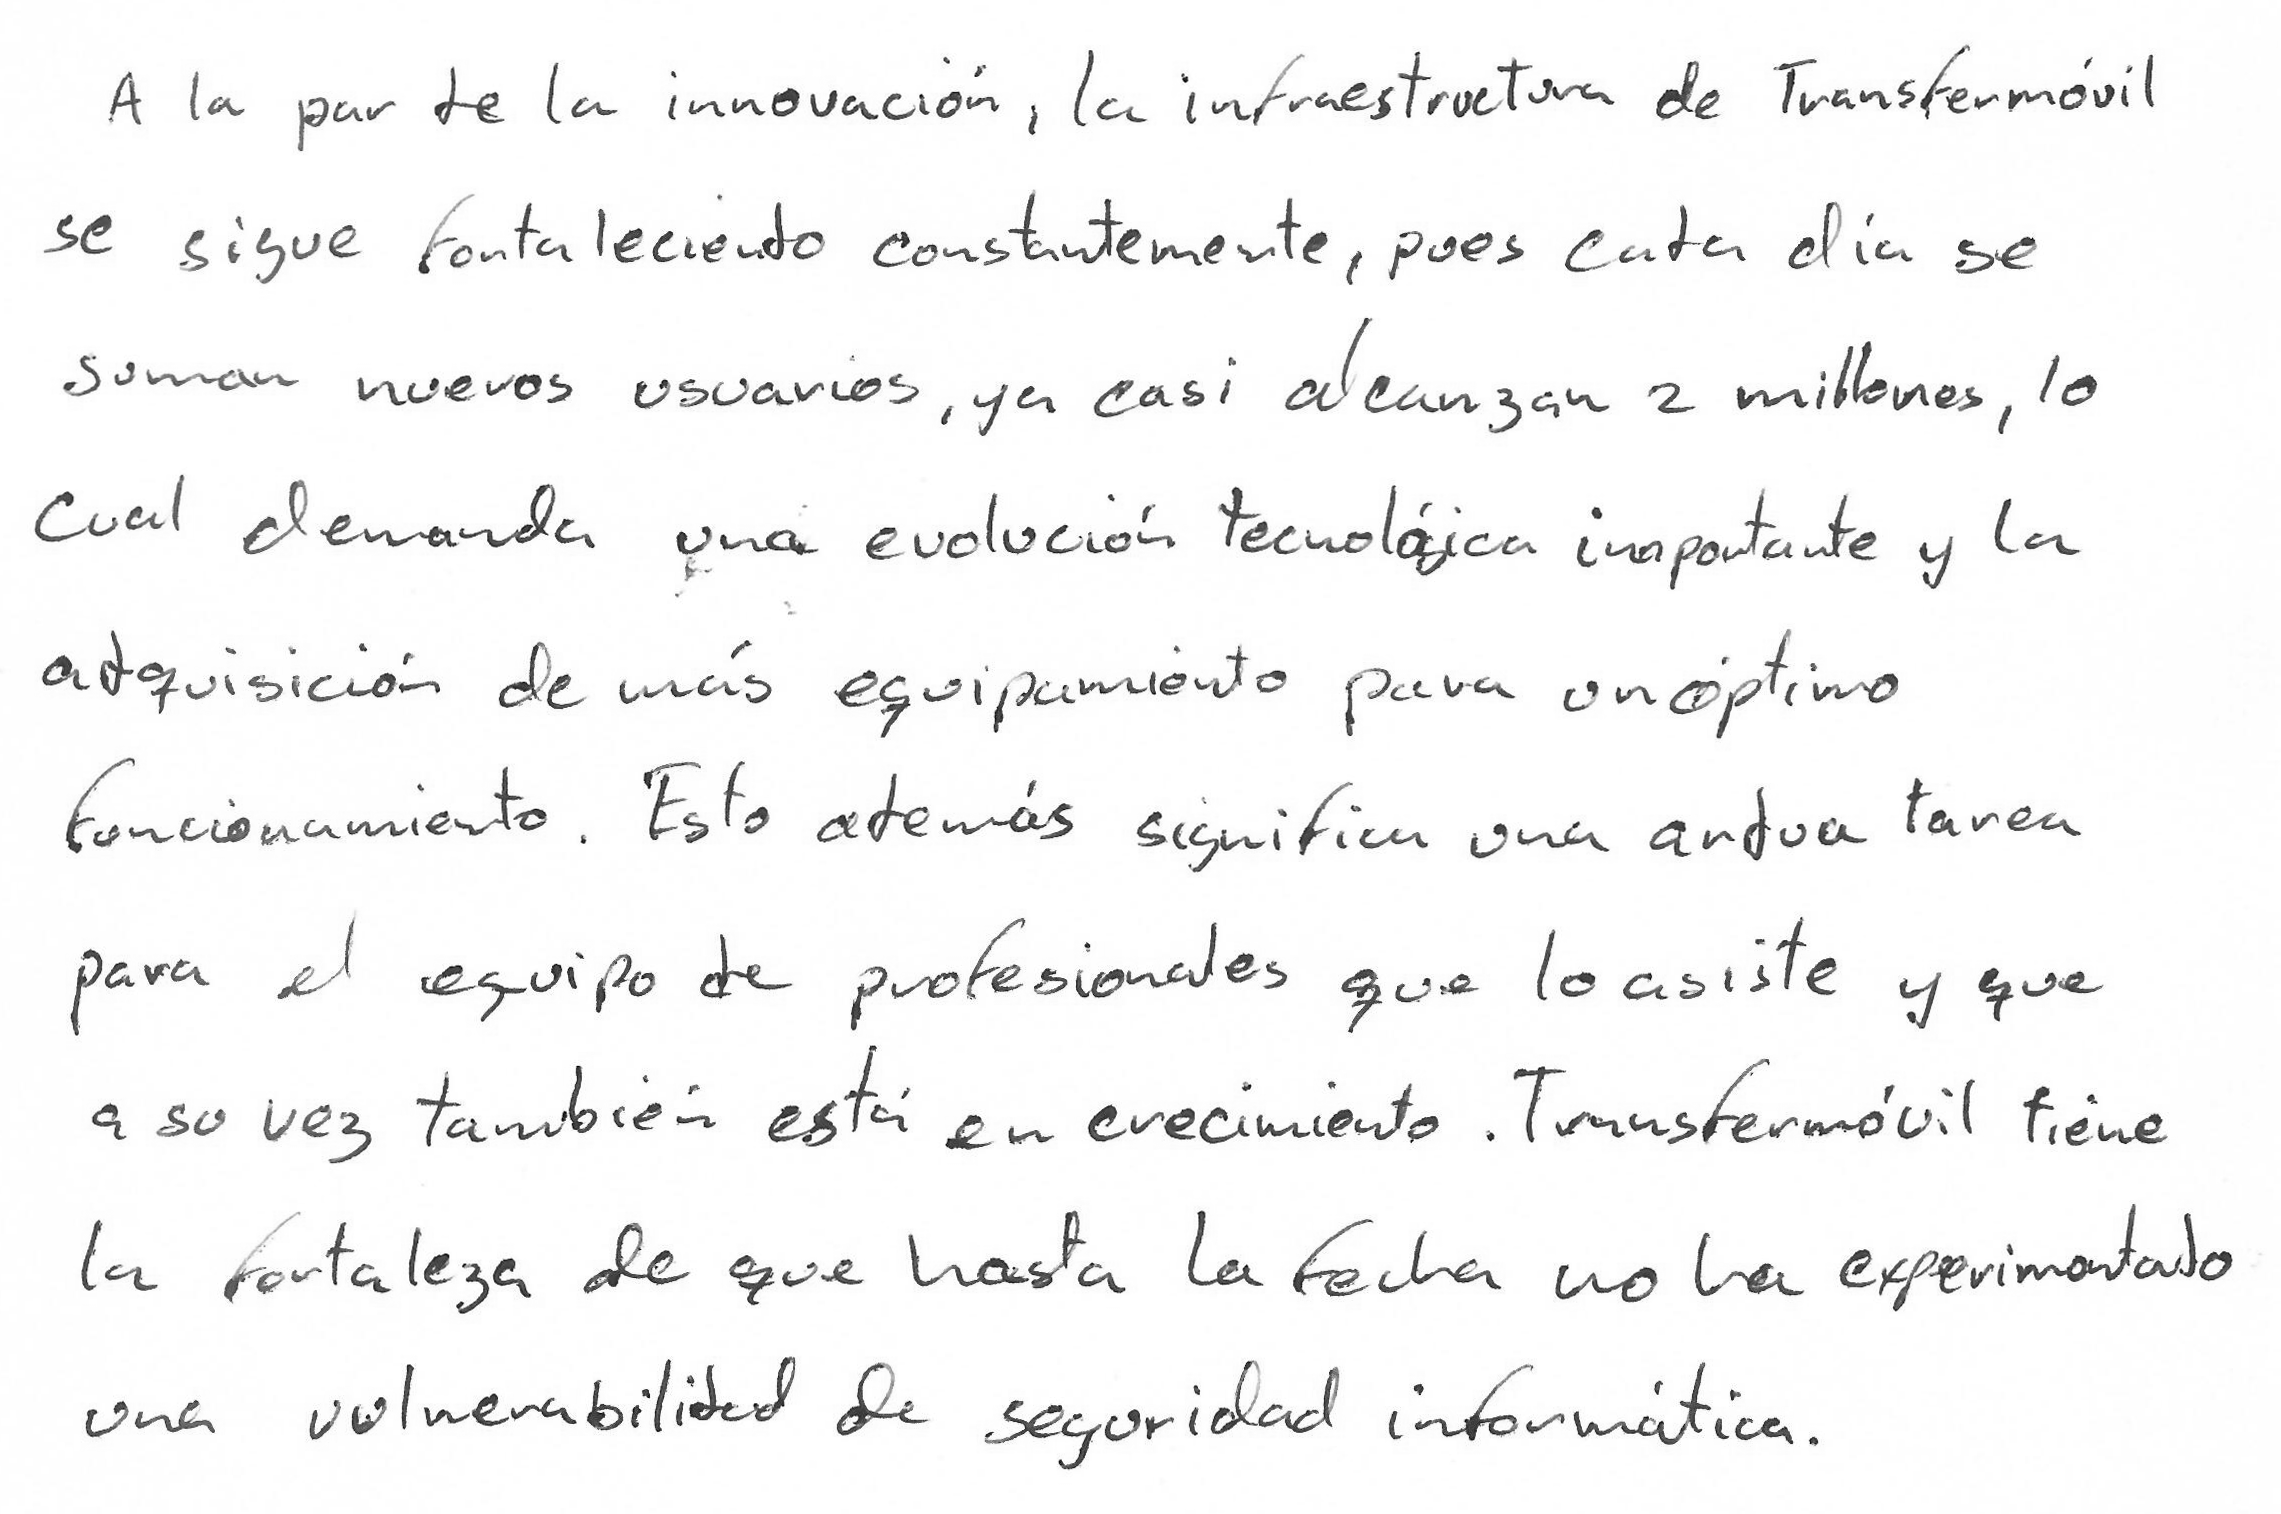 A la par de la innovación, la infraestructura de Transfermóvil
se sigue fortaleciendo constantemente, pues cada día se
suman nuevos usuarios, ya casi alcanzan 2 millones, lo
cual demanda una evolución tecnológica importante y la
adquisición de más equipamiento para un óptimo
funcionamiento. Esto además significa una ardua tarea
para el equipo de profesionales que lo asiste y que
a su vez también está en crecimiento. Transfermóvil tiene
la fortaleza de que hasta la fecha no ha experimentado
una vulnerabilidad de seguridad informática.